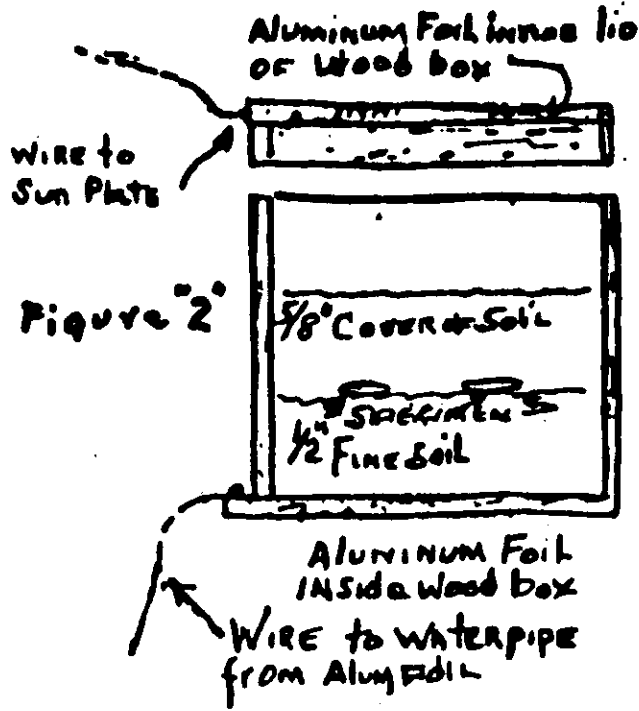 Aluminum Foil inside lid
OF Wood box
WIRE to
Sun Plate
Figure "2"
5/8" COVER of Soil
SPECIMENS
1/2" FINE Soil
ALUNINUM FOIL
INSide Wood box
WIRE to WATERPIPE
from Alum Foil